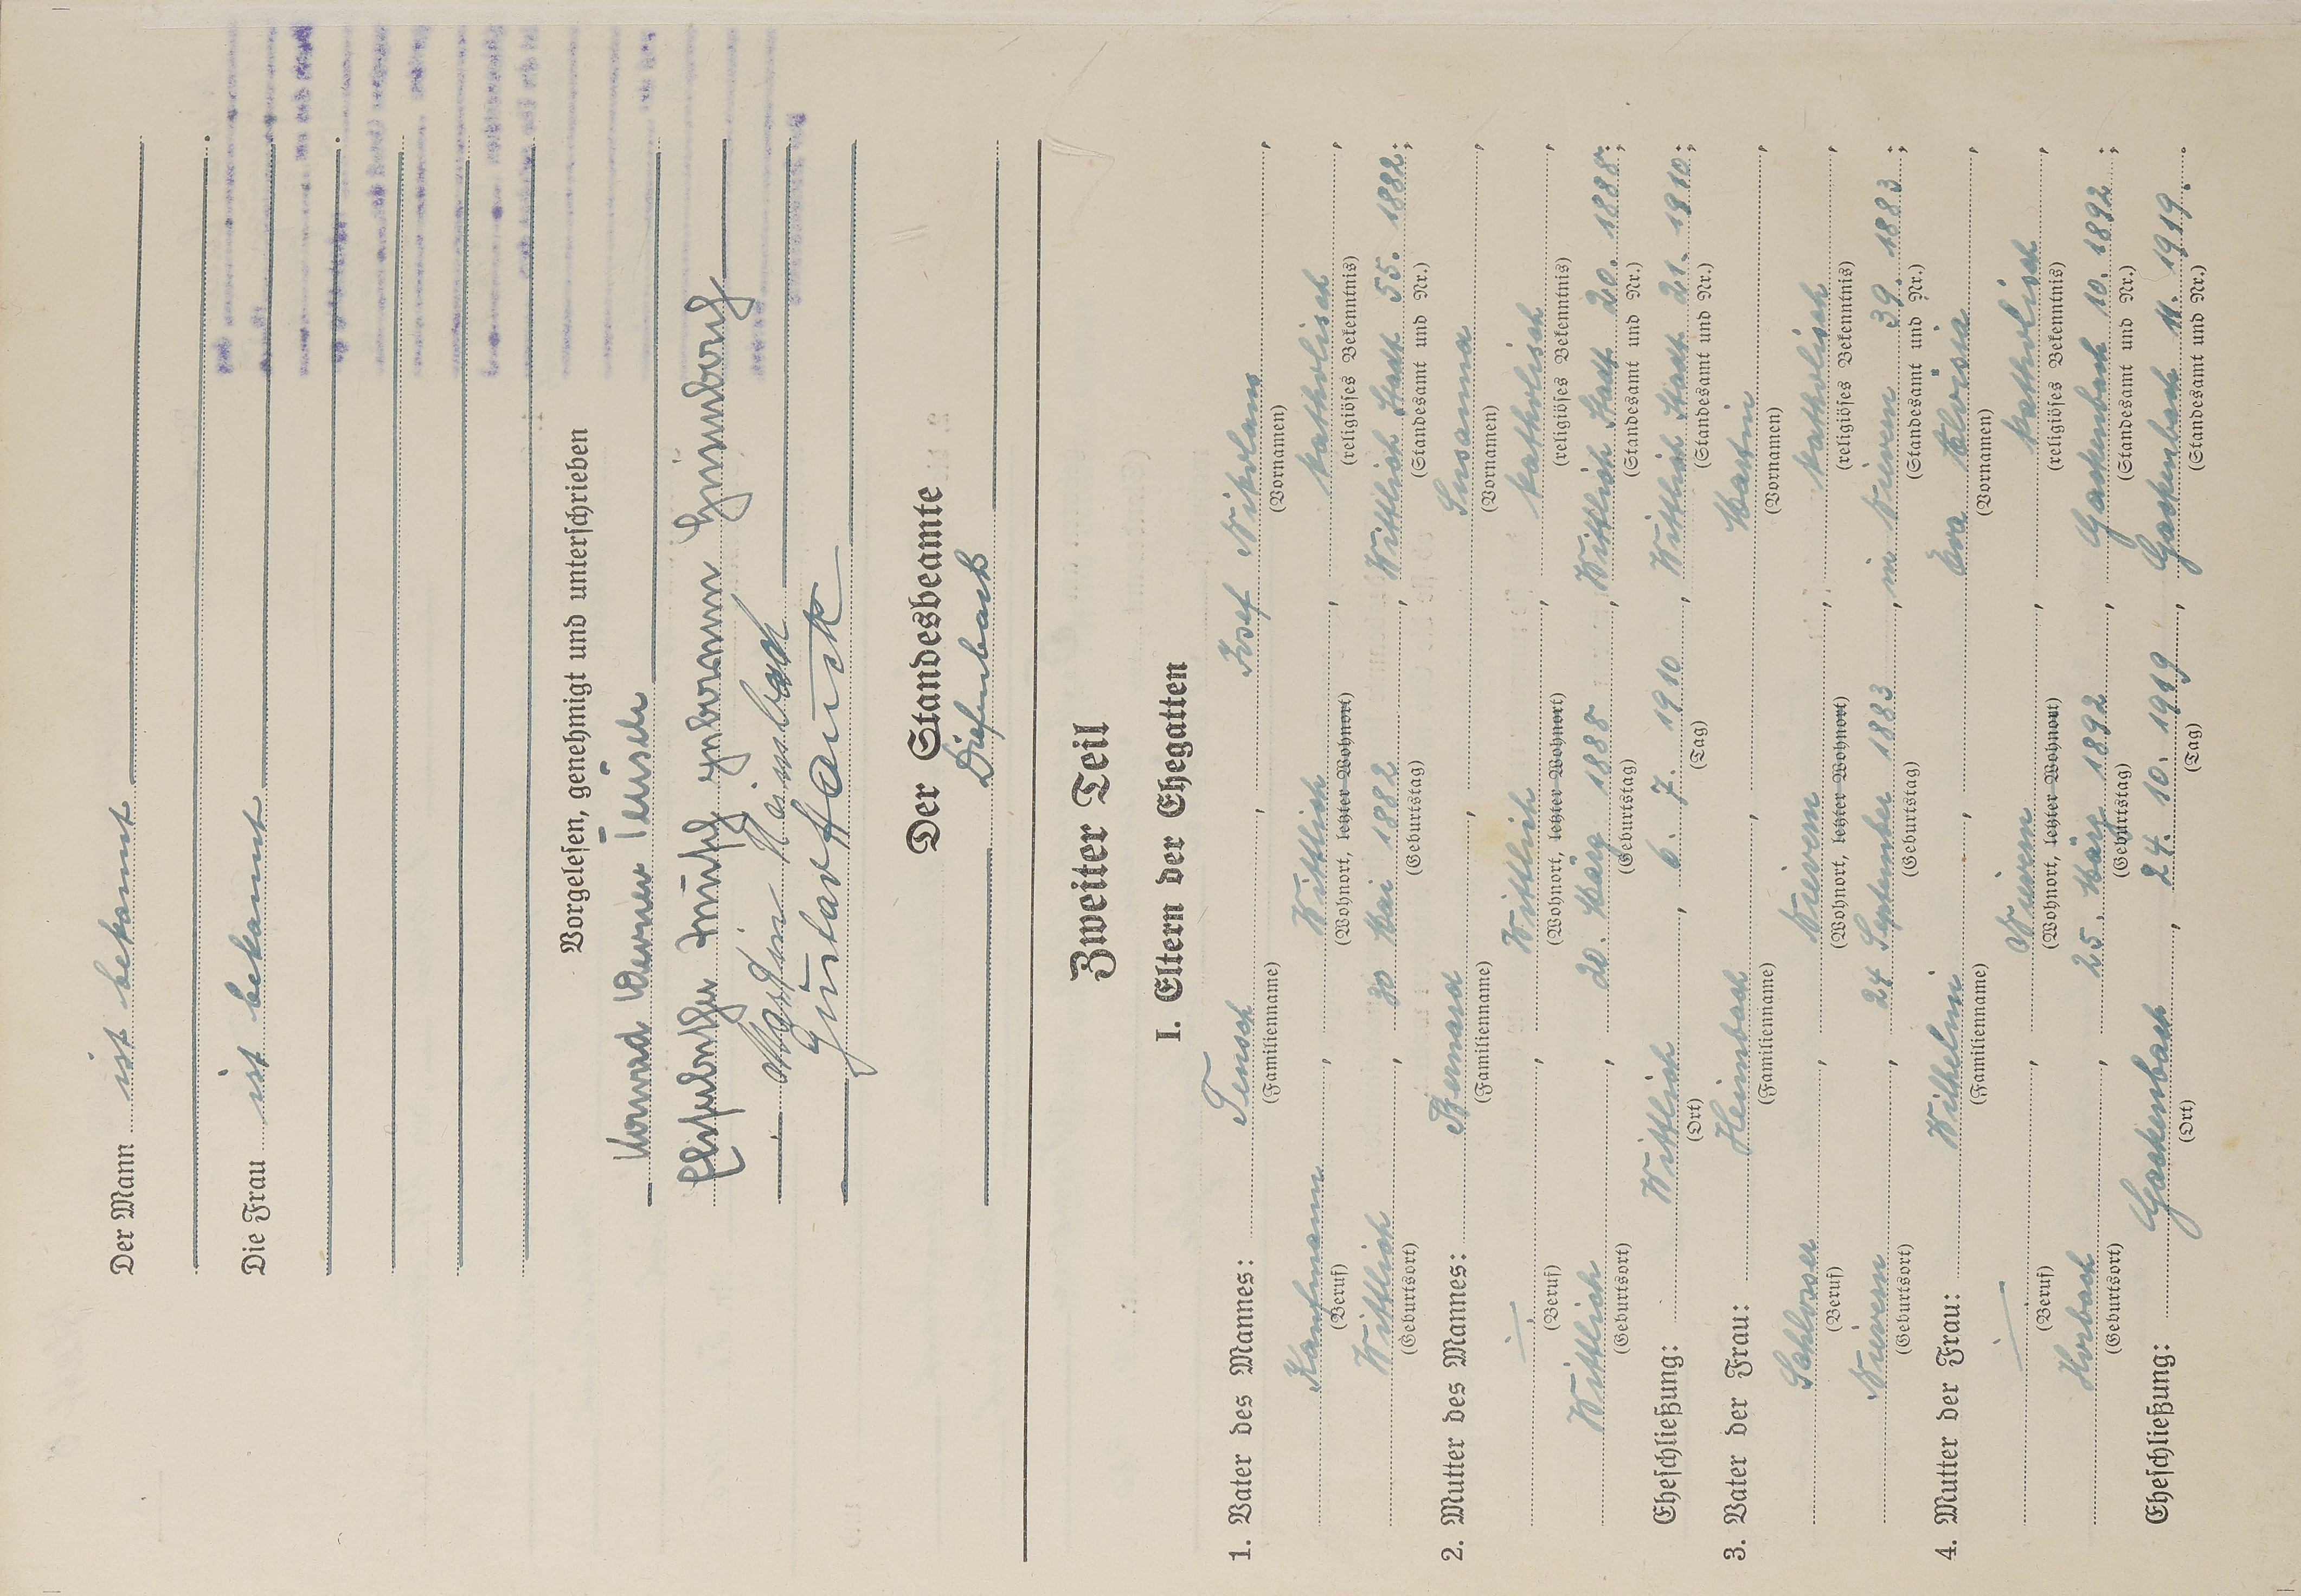 Der Mann ist bekannt
Die Frau ist bekannt
Vorgelesen, genehmigt und unterschrieben
Konrad Werner Teusch
Elisabetha Teusch geborenen Heimbach
Martin Heimbach
Gustav Hauck
Der Standesbeamte
Diefenbach
Zweiter Teil
I. Eltern der Ehegatten
1. Vater des Mannes: Teusch, Josef Nikolaus,
(Familienname) (Vornamen)
Kaufmann, Wittlich, katholisch,
(Beruf) (Wohnort, letzter Wohnort) (religiöses Bekenntnis)
Wittlich, 30 Mai 1882, Wittlich Stadt 55. 1882;
(Geburtsort) (Geburtstag) (Standesamt und Nr.)
2. Mutter des Mannes: Bernard, Susanna,
(Familienname) (Vornamen)
—, Wittlich, katholisch,
(Beruf) (Wohnort, letzter Wohnort) (religiöses Bekenntnis)
Wittlich, 20. März 1888, Wittlich Stadt 20. 1888;
(Geburtsort) (Geburtstag) (Standesamt und Nr.)
Eheschließung: Wittlich, 6. 7. 1910, Wittlich Stadt 21. 1910;
(Ort) (Tag) (Standesamt und Nr.)
3. Vater der Frau: Heimbach, Martin,
(Familienname) (Vornamen)
Schlosser, Nievern, katholisch,
(Beruf) (Wohnort, letzter Wohnort) (religiöses Bekenntnis)
Nievern, 24 September 1883, in Nievern 39. 1883;
(Geburtsort) (Geburtstag) (Standesamt und Nr.)
4. Mutter der Frau: Wilhelmi, Eva Aloisia,
(Familienname) (Vornamen)
—, Nievern, katholisch,
(Beruf) (Wohnort, letzter Wohnort) (religiöses Bekenntnis)
Horbach, 25. März 1892, Gackenbach 10. 1892;
(Geburtsort) (Geburtstag) (Standesamt und Nr.)
Eheschließung: Gackenbach, 24. 10. 1919, Gackenbach 11. 1919.
(Ort) (Tag) (Standesamt und Nr.)